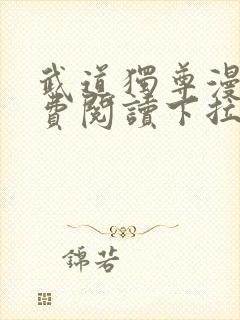 武道獨尊漫
費閱讀下拉
錦若